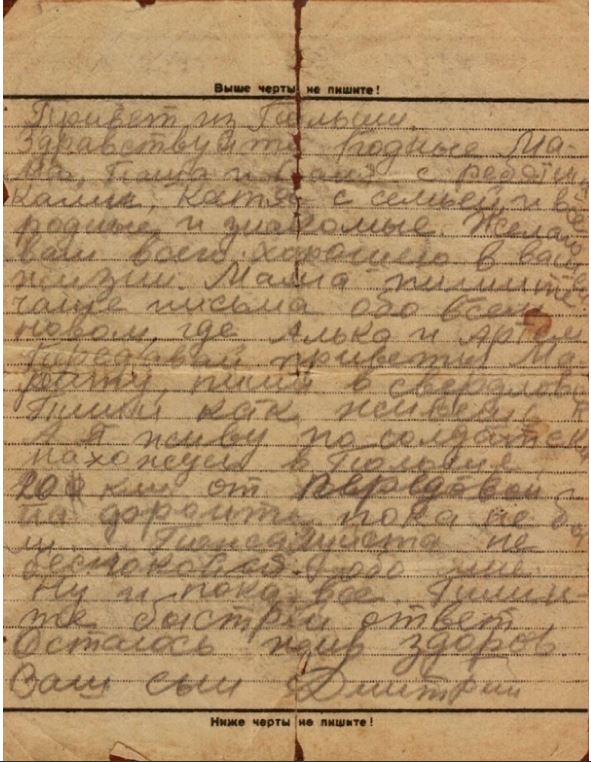 Выше черты не пишите!
Привет из Польши.
Здравствуйте родные Ма-
ма, Паша и Ваня с ребятиш
ками, Катя с семьей и все
родные и знакомые. Желаю
вам всего хорошего в ваше
жизни. Мама пишите
чаще письма обо всем
новом, где Алька и Артем
Передавай приветы Ма
рату, пиши в Свердловск
Пиши как живет
Я живу по солдатски
нахожусь в Польше,
200 км от передовой
на фронте пока не бы
ли. Пожалуйста не
беспокойся обо мне.
Ну и пока все. Пиши-
же быстрей ответ
Осталось жив здоров
Ваш сын Дмитрий
Ниже черты не пишите!